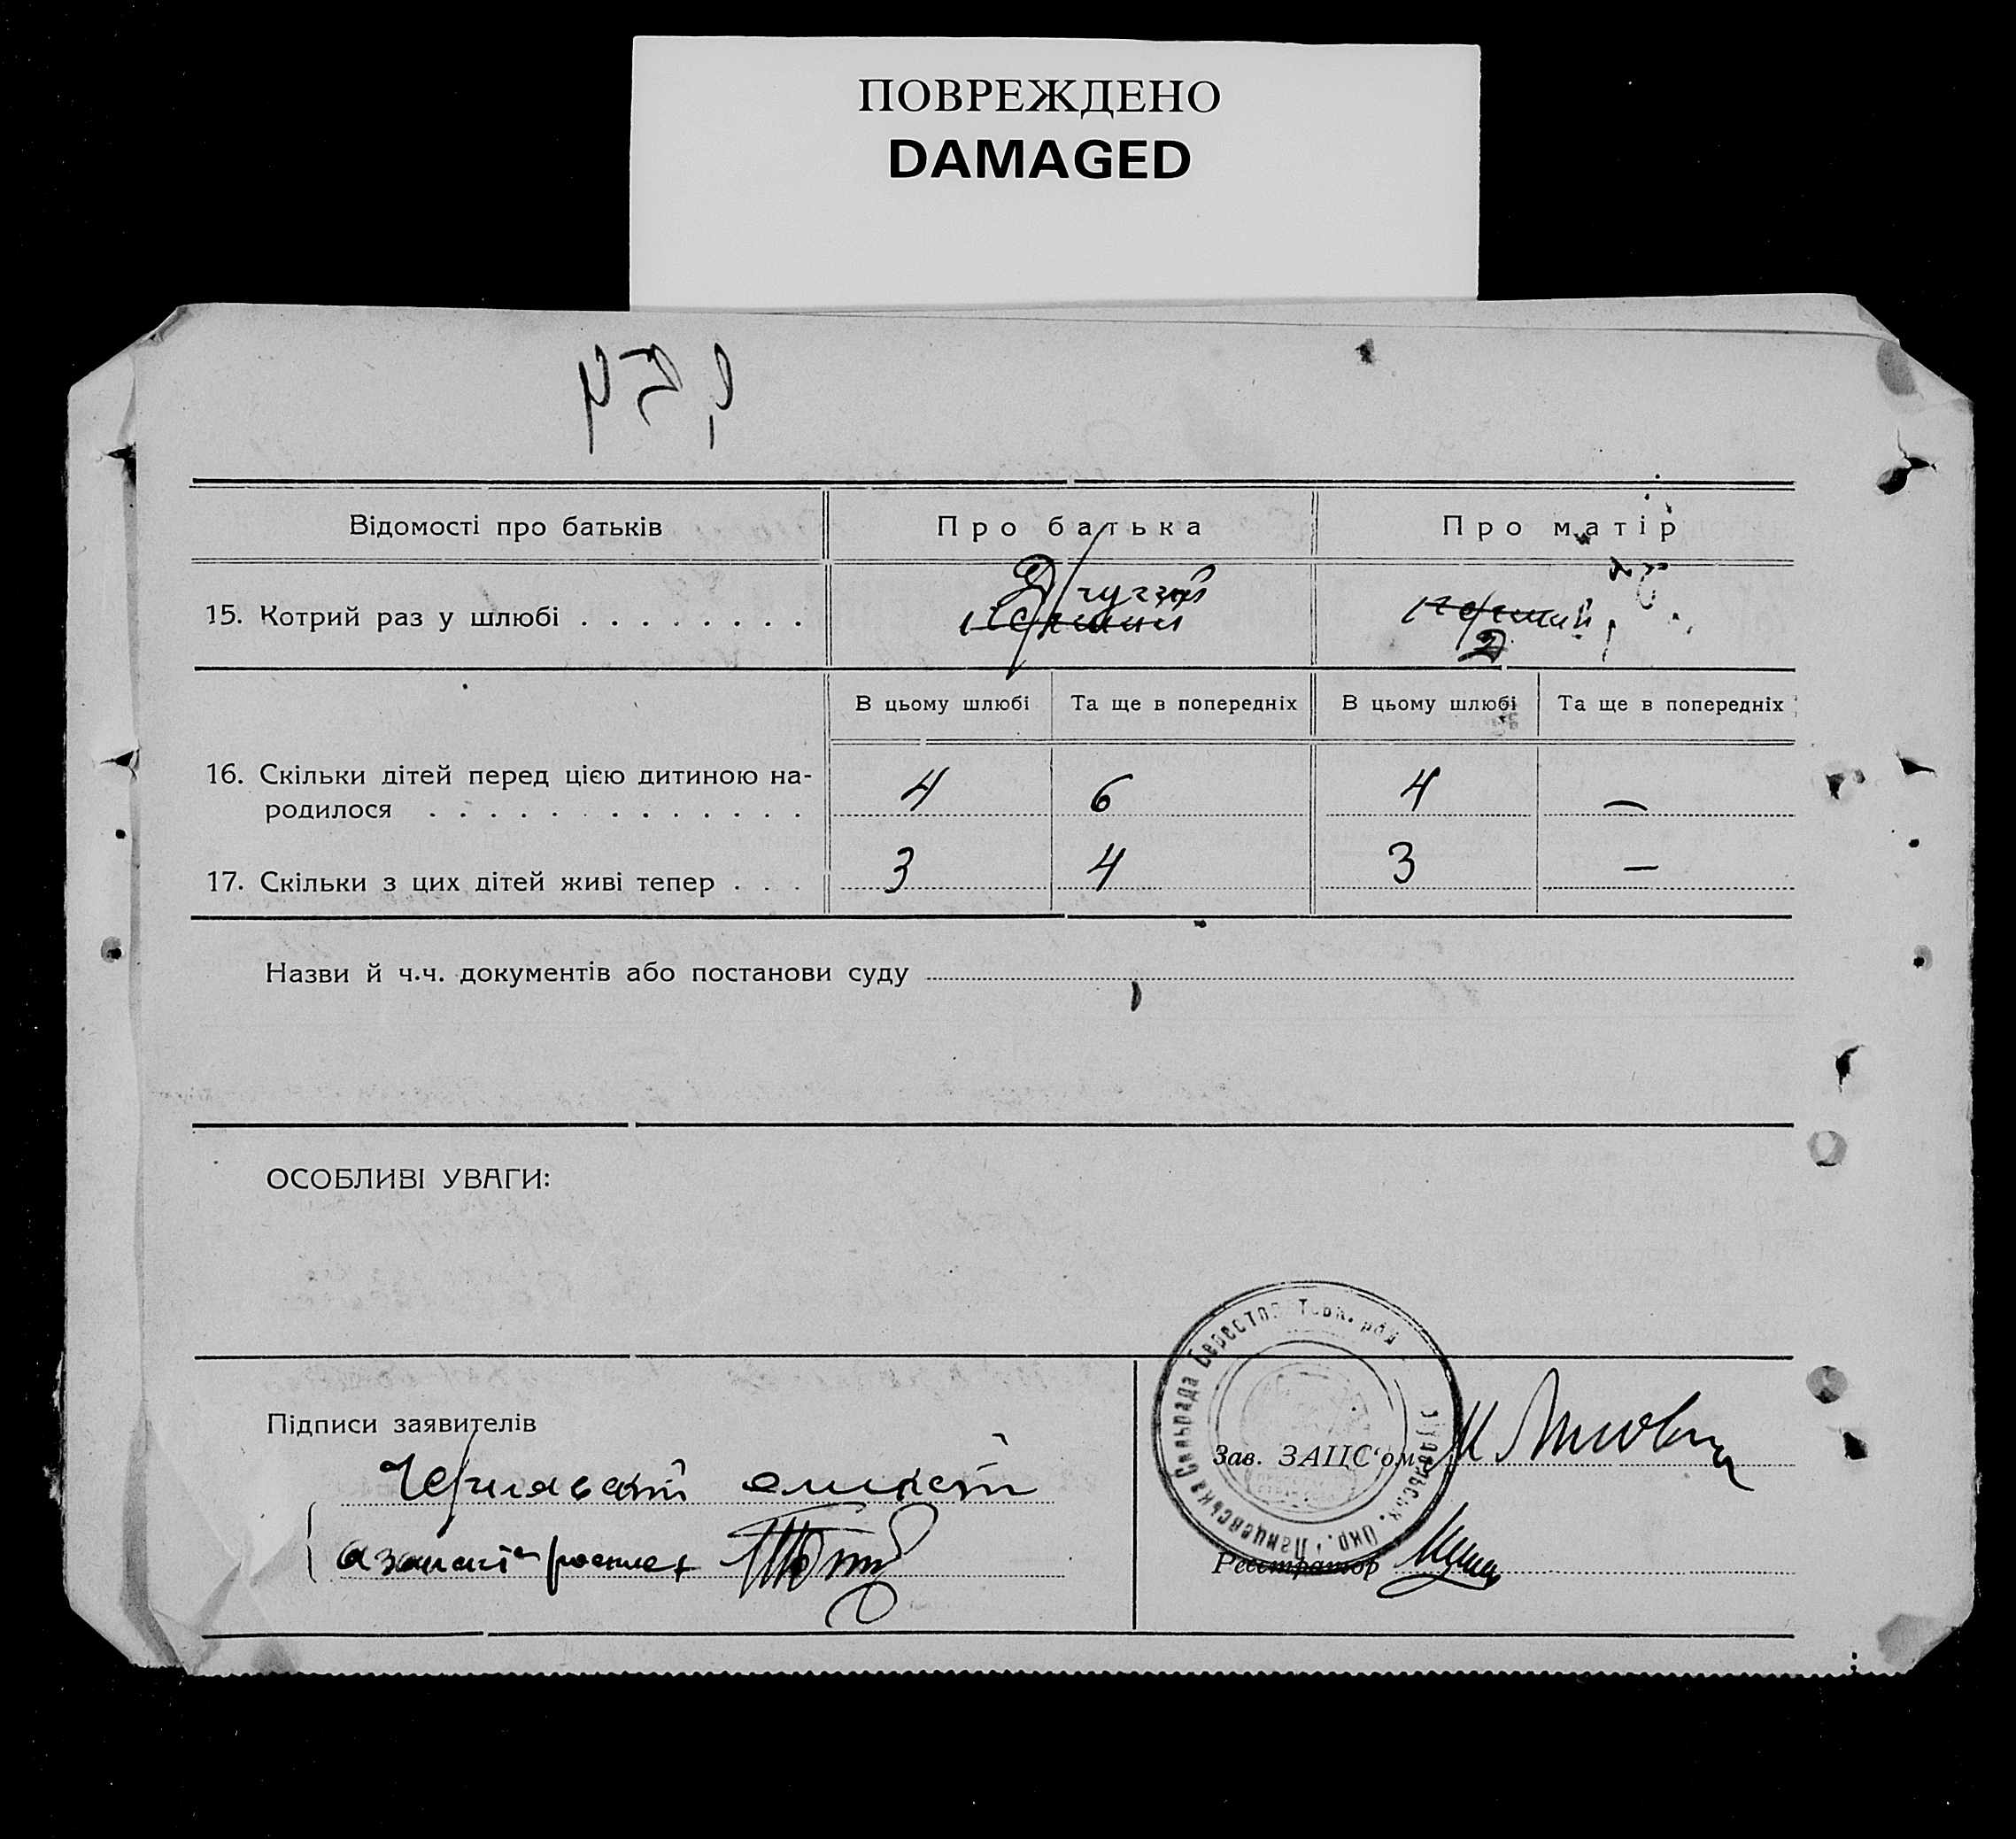 ПОВРЕЖДЕНО
DAMAGED
Відомості про батьків
Про батька
Про матір
15. Котрий раз у шлюбі . . . . . . . .
Другий
перший
перший
2
В цьому шлюбі
Та ще в попередніх
В цьому шлюбі
Та ще в попередніх
16. Скільки дітей перед цією дитиною на-
родилося . . . . . . . . . . . . .
4
6
4
—
17. Скільки з цих дітей живі тепер . . .
3
4
3
—
Назви й ч.ч. документів або постанови суду
ОСОБЛИВІ УВАГИ:
Підписи заявителів
Чернявский
Зав. ЗАЦС‘ом
Реєстратор
Сільрада
Окр.